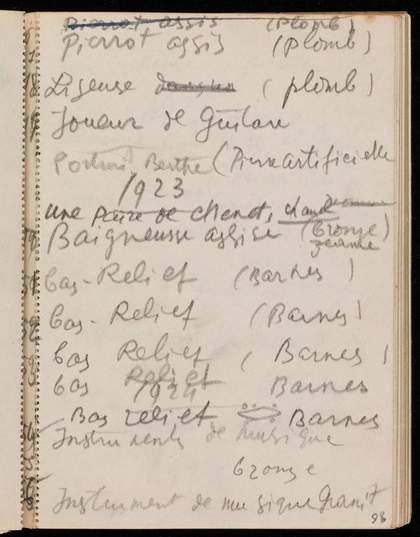 Pierrot assis (Plomb)
Pierrot assis (Plomb)
Liseuse (plomb)
Joueur de Guitare
Portrait Berthe (Pierre artificielle
1923
une Paire de Chenet,
Baigneusse assise (bronze)
bas-Relief (Barnes)
bas-Relief (Barnes)
bas Relief (Barnes)
bas Relief Barnes
1924
Bas relief Barnes
Instruments de musique
bronze
Instrument de musique Granit
98